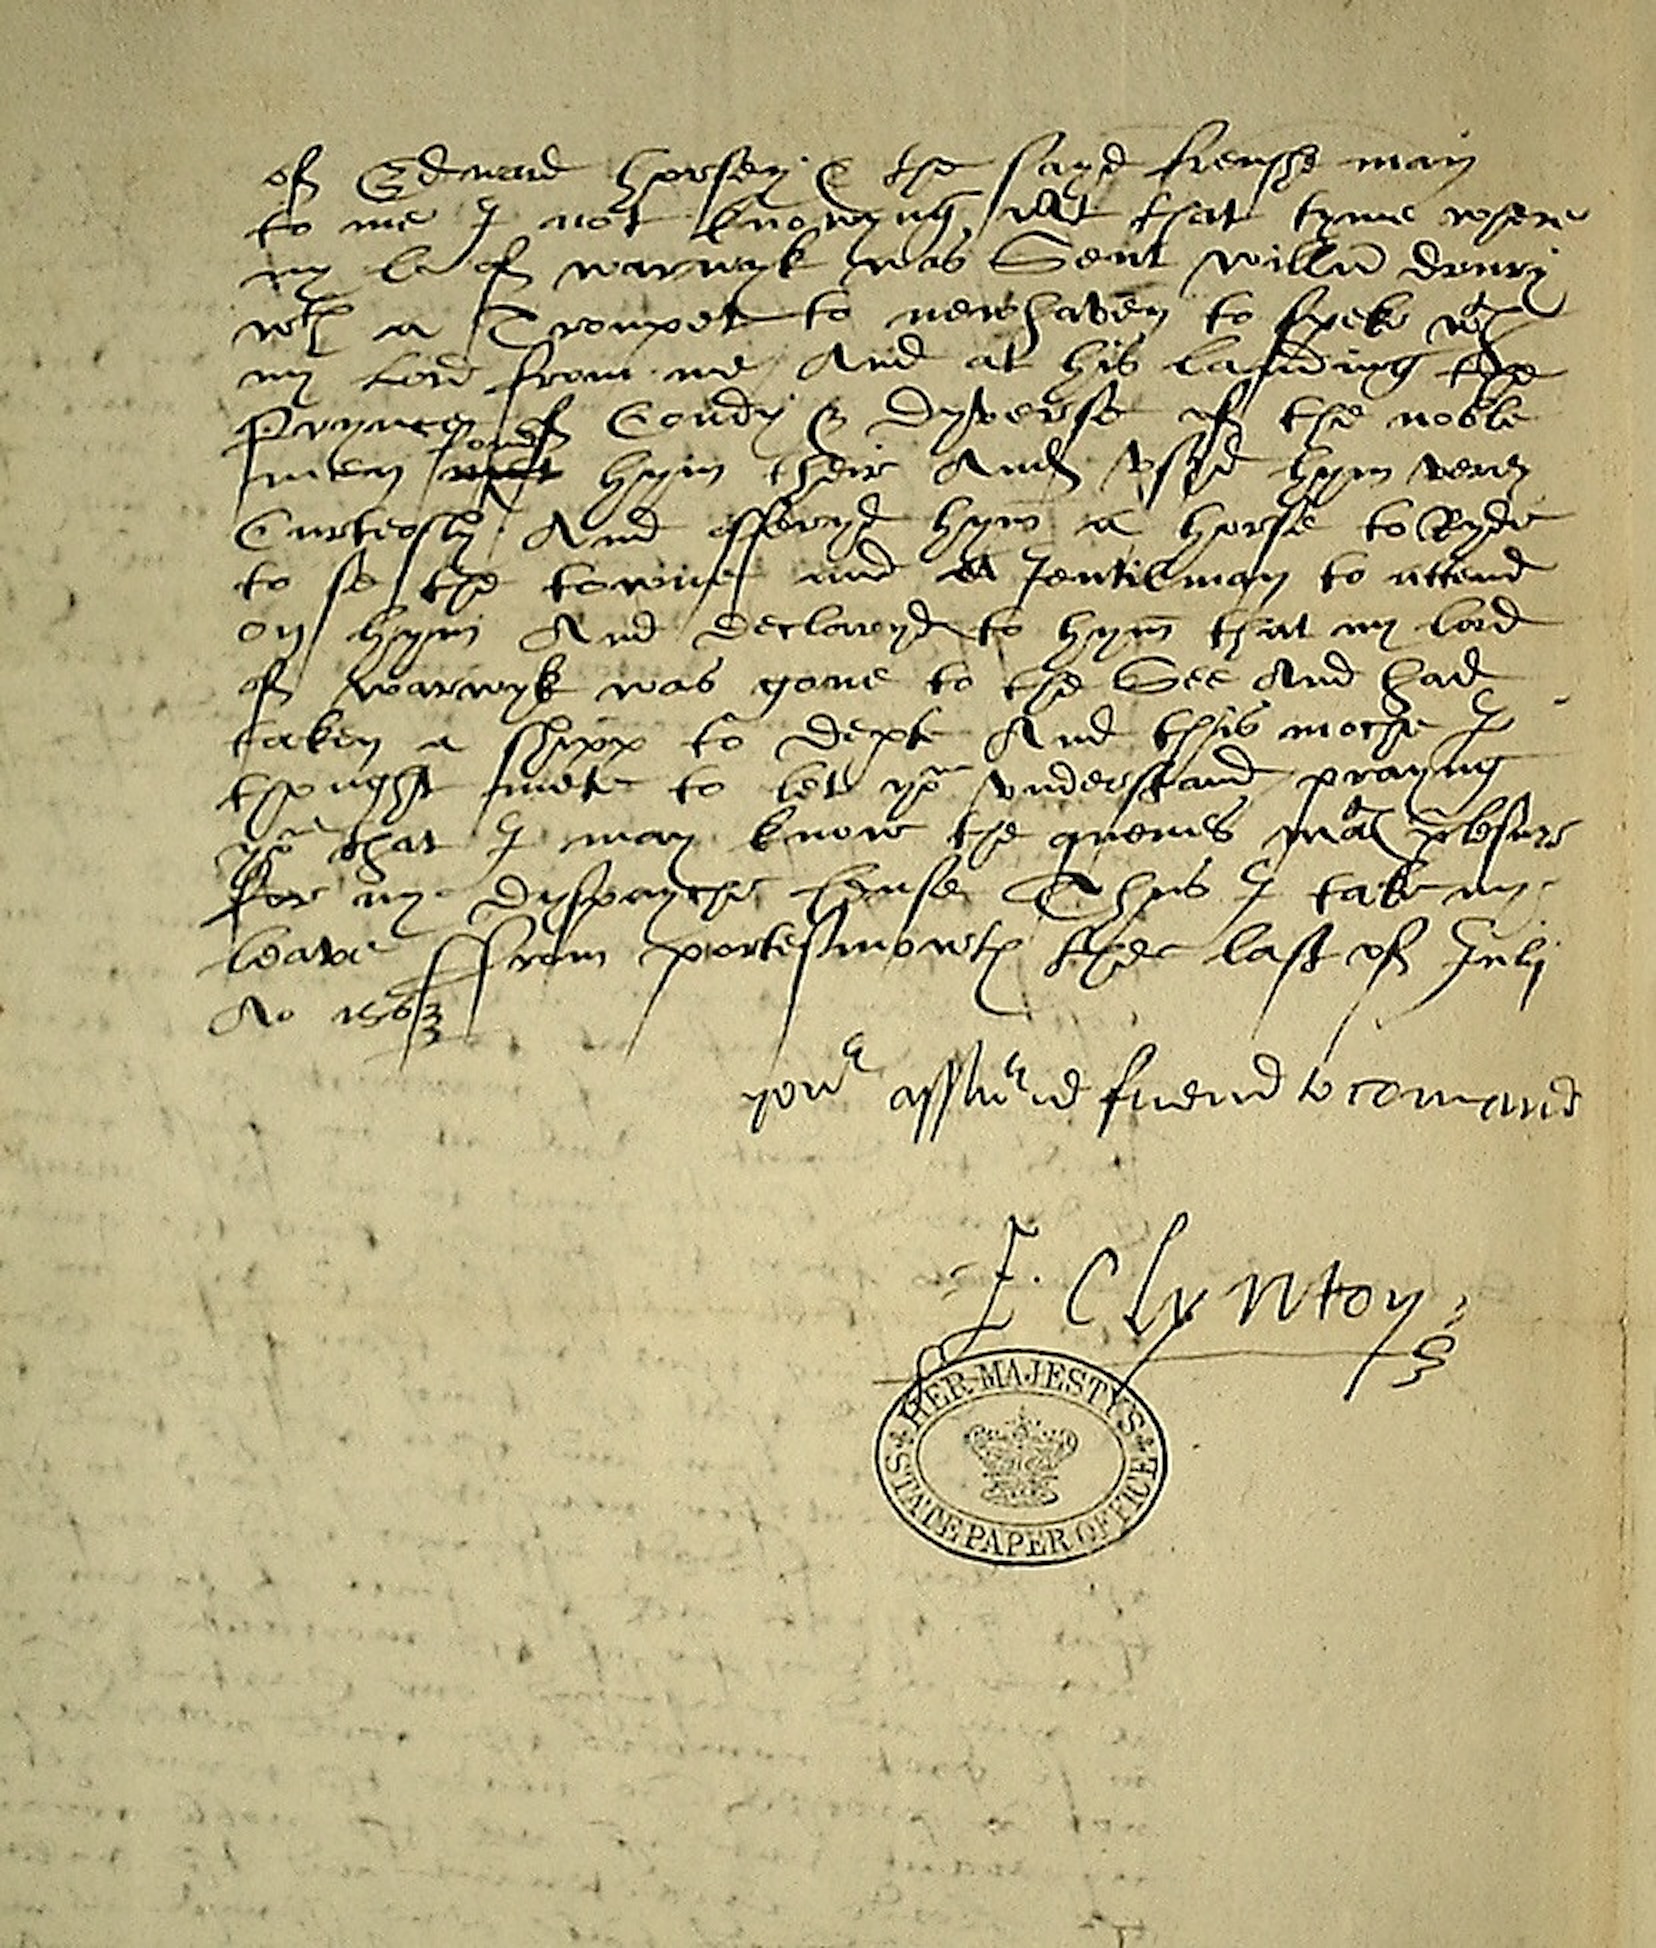 of Edward horsey & the sayd frenshe man
to me I not knowyng at that tyme where
my L of warwyk was Sent willm drury
wth a Trompet to newhaven to speke wth
my Lord from me And at his landing the
Prynce of Condy & dyverse of the noble
men fond hym their And vsyd hym very
Curteosly And offeryd hym a horse to Ryde
to se the towne and a Jentilman to attend
on hym And declaryd to hym that my lord
of warwyk was gone to the See And had
taken a shipp to depte And this moche I
thought mete to let yow vnderstand prayng
yow that I may know the quenes mats plesure
for my dyspatche hense Thus I take my
leave ffrom portesmowth the last of July
Ao 1563
your assurid friend to comand
E. Clynton
HER MAJESTY'S
STATE PAPER OFFICE